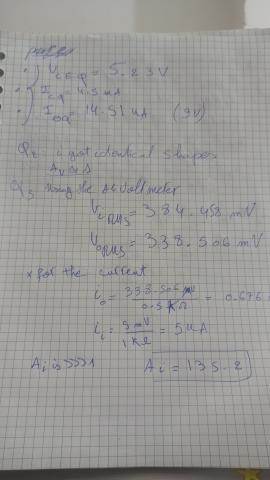 V_CEQ = 5.23V
I_CQ = 4.5 mA
I_BQ = 14.51 uA (9V)
Q2 i got identical shapes
Av ≈ 1
Q3 Using the AC voltmeter
Vi RMS = 384.458 mV
Vo RMS = 338.506 mV
* for the current
io = 338.506 mV / 0.5 KΩ = 0.676
ii = 5mV / 1KΩ = 5uA
Ai is >>>>1 Ai = 135.2